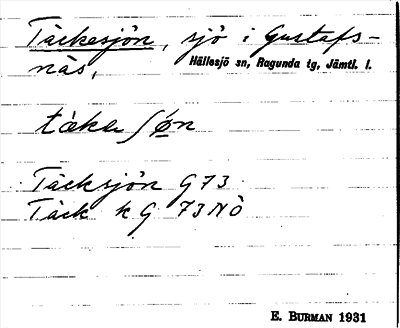 Täckesjön, sjö i Gustafs-
näs, Hällesjö sn, Ragunda tg, Jämtl. l.
Täcksjön G73
Täck k G 73NÖ
E. BURMAN 1931